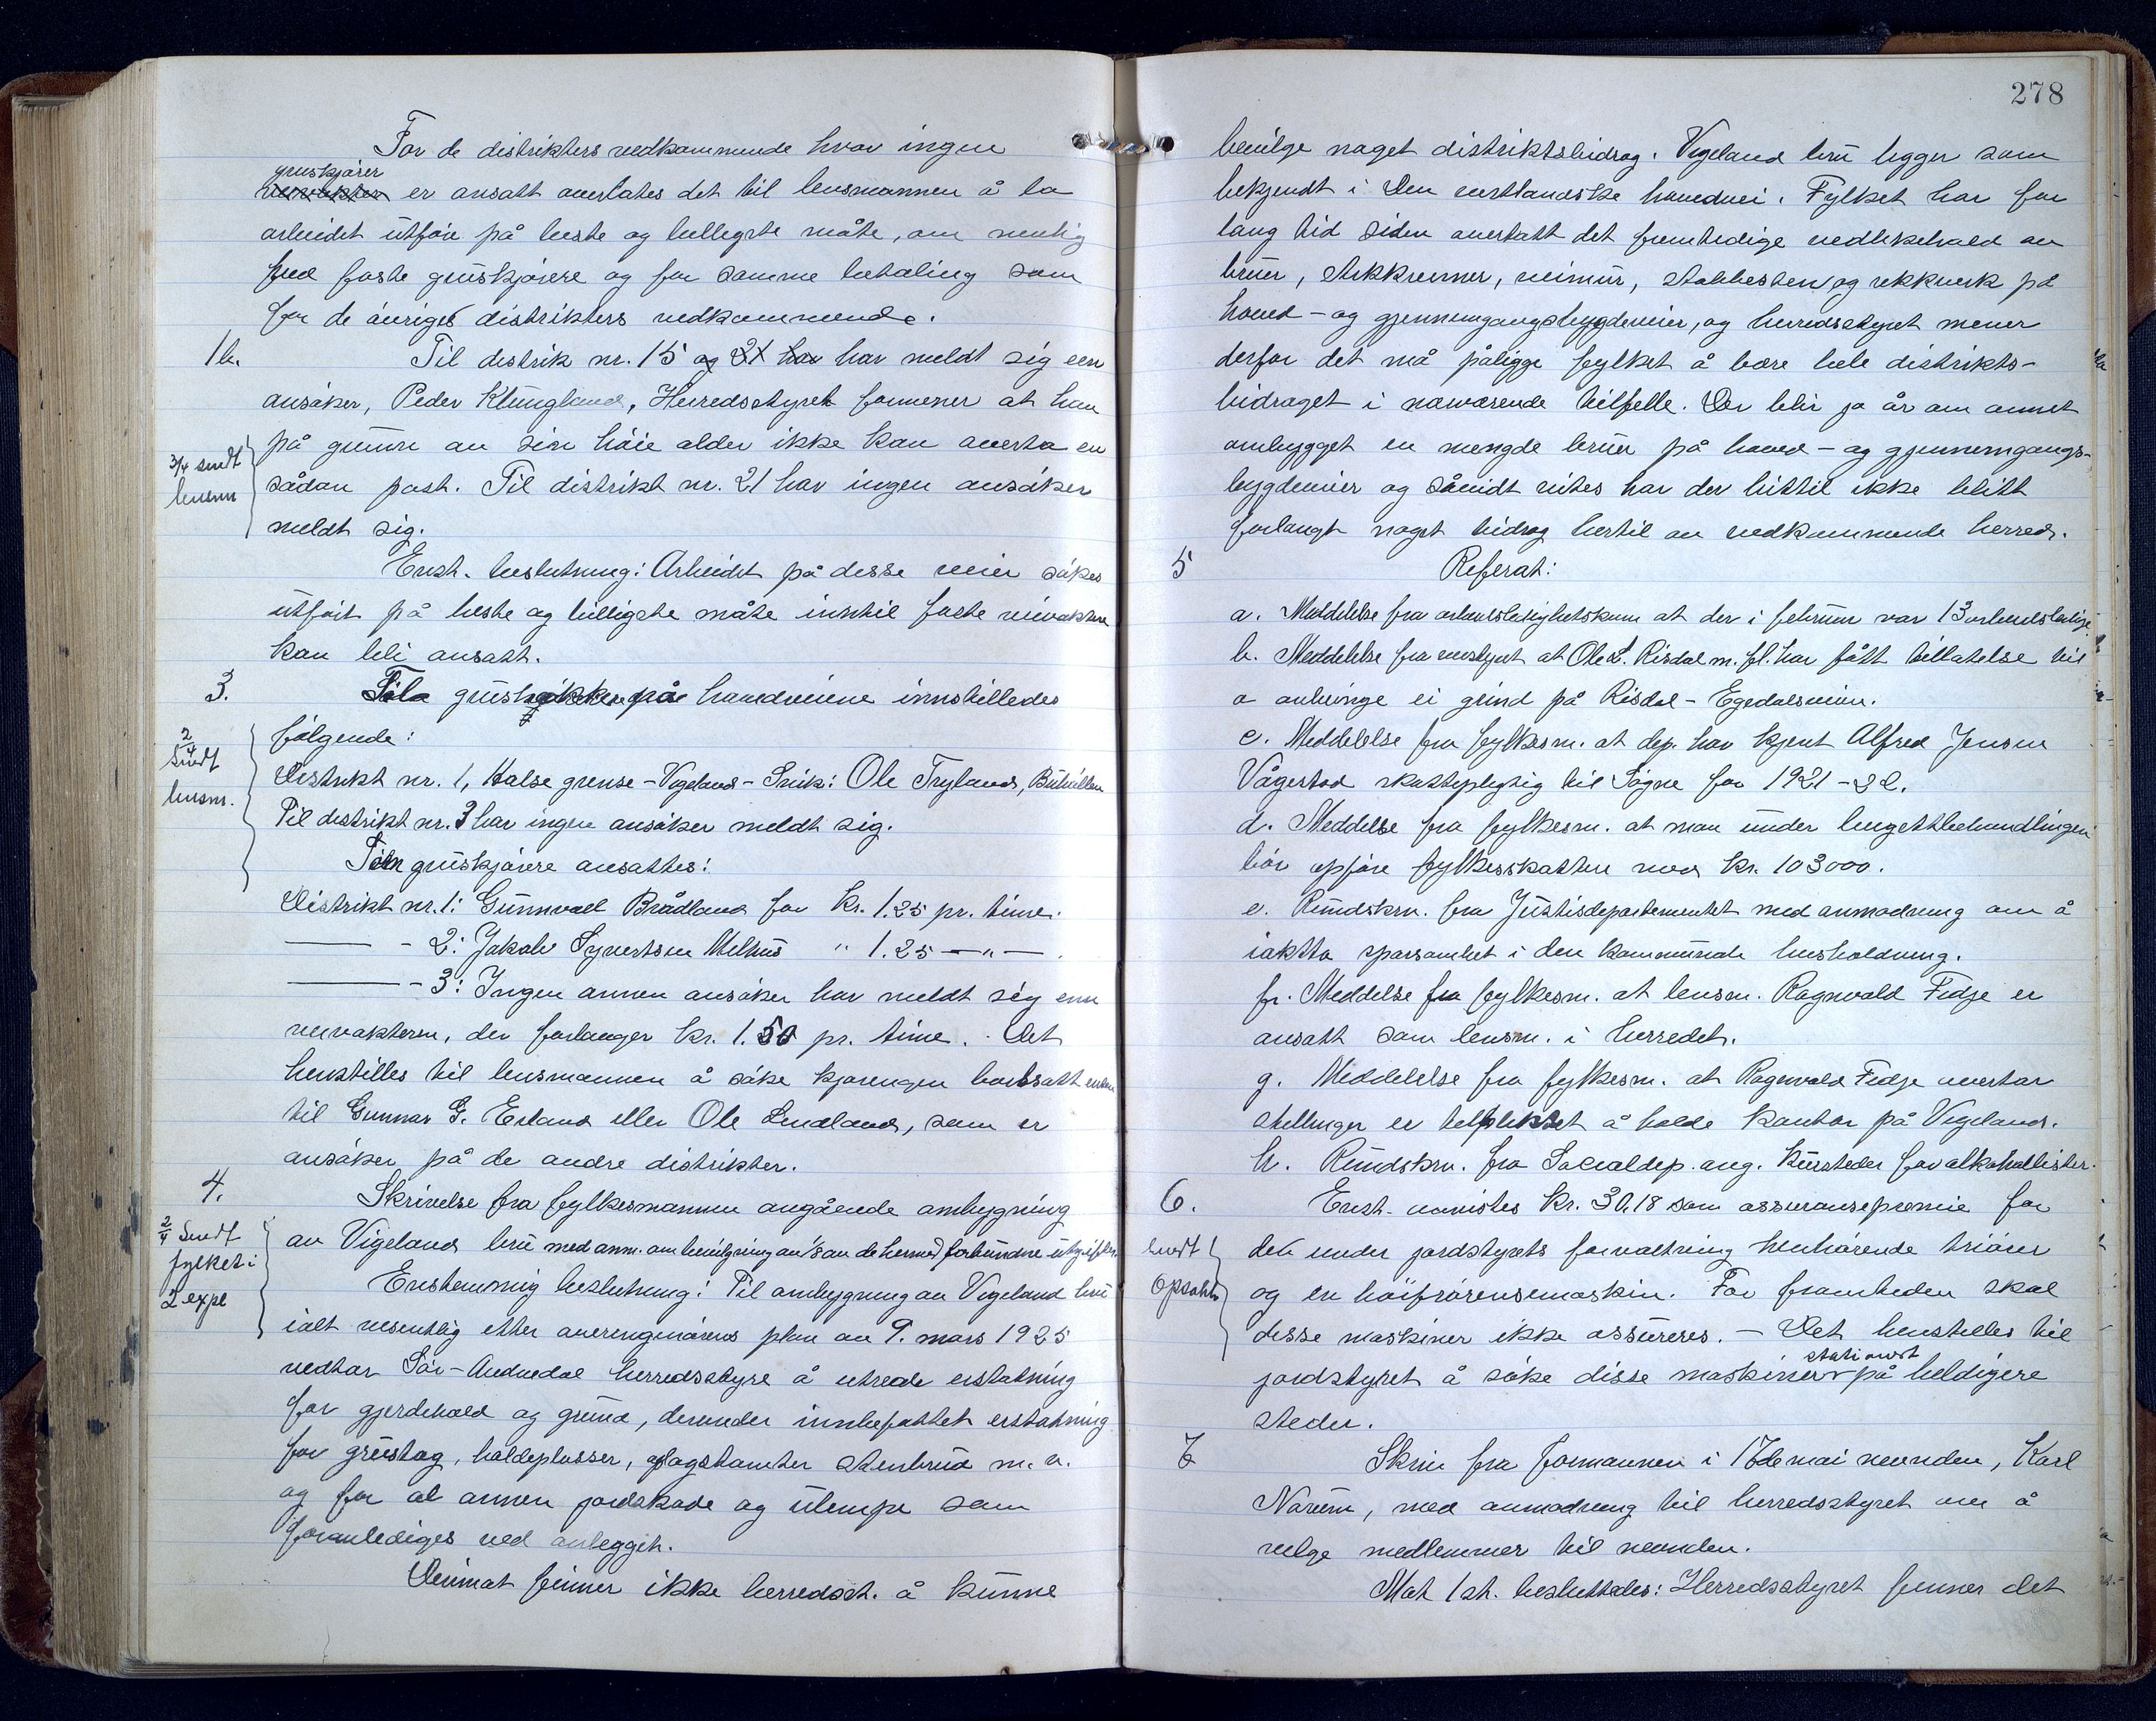 For de distrikters vedkommende hvor ingen
gruskjører
veivokter er ansatt overlates det til lensmannen å la
arbeidet utføre på beste og billigste måte, om mulig
ved faste gruskjørere og for samme betaling som
for de øvriges distrikters vedkommende.
1b. Til distrik nr. 15 og 21 har har meldt sig een
ansøker, Peder Klungland, Herredsstyret formener at han
på grunn av sin høie alder ikke kan overta en
3/4 sendt
lensm
sådan post. Til distrikt nr. 21 har ingen ansøker
meldt sig.
Enst. beslutning: Arbeidet på disse veier søkes
utført på beste og billigste måte inntil faste veivoktere
kan bli ansatt.
3. på hovedveiene innstilledes
2/4 sendt
lensm.
følgende:
Distrikt nr. 1, Halse grense - Vigeland - Snik: Ole Tryland,
Til distrikt nr. 3 har ingen ansøker meldt sig.
Som gruskjørere ansattes:
Distrikt nr. 1: Gunnvald Brådland for kr. 1.25 pr. time.
— - 2: Jakob Syvertsen Melhus " 1.25 — " —.
— - 3: Ingen annen ansøker har meldt sig enn
veivokteren, der forlanger kr. 1.50 pr. time. Det
henstilles til lensmannen å søke kjøringen bortsatt enten
til Gunnar G. Eiland eller Ole Lindland, som er
ansøker på de andre distrikter.
4. Skrivelse fra fylkesmannen angående ombygning
2/4 Sendt
fylket i
2 expl
av Vigeland bru med anm. om bevilgning av 1/8 av de hermed forbundne utgifter.
Enstemmig beslutning: Til ombygning av Vigeland bru
ialt vesentlig etter overingeniørens plan av 9. mars 1925
vedtar Sør-Audnedal herredsstyre å utrede erstatning
for gjerdehold og grunn, derunder innbefattet erstatning
for grustag, holdeplasser, oplagstomter stenbrud m. v.
og for al annen jordskade og ulempe som
foranlediges ved anlegget.
Derimot finner ikke herredsst. å kunne
278
bevilge noget distriktsbidrag. Vigeland bru ligger som
bekjendt i Den vestlandske hovedvei. Fylket har for
lang tid siden overtatt det fremtidige vedlikehold av
bruer, stikkrenner, veimur, stabbesten og rekkverk på
hoved- og gjennemgangsbygdeveier, og herredsstyret mener
derfor det må påligge fylket å bære hele distrikts-
bidraget i nærværende tilfelle. Der blir jo år om annet
ombygget en mengde bruer på hoved- og gjennemgangs-
bygdeveier og såvidt vites har der hittil ikke blitt
forlangt noget bidrag hertil av vedkommende herred.
5 Referat:
a. Meddelelse fra arbeidsledighetskom at der i februar var 13 arbeidsledige
b. Meddelelse fra veistyret at Ole L. Risdal m. fl. har fått tillatelse til
å anbringe ei grind på Risdal - Egedalsveien.
c. Meddelelse fra fylkesm. at dep. har kjent Alfred Jensen
Vågestad skattepligtig til Søgne for 1921-22.
d. Meddelse fra fylkesm. at man under budgettbehandlingen
bør opføre fylkesskatten med kr. 103000.
e. Rundskrv. fra Justisdepartementet med anmodning om å
iaktta sparsomhet i den kommunale husholdning.
f. Meddelse fra fylkesm. at lensm. Ragnvald Fidje er
ansatt som lensm. i herredet.
g. Meddelelse fra fylkesm. at Ragnvald Fidje overtar
stillingen er tilpliktet å holde kontor på Vigeland.
h. Rundskrv. fra Socialdep. ang. kursteder for alkoholister.
6. Enst. vedtas kr. 30,18 som assuransepremie for
sendt
Opsahl
den under jordstyrets forvaltning henhørende triører
og en høifrørensemaskin. For framtiden skal
disse maskiner ikke assureres. — Det henstilles til
stationert
jordstyret å søke disse maskiner på heldigere
steder.
7 Skriv fra formannen i 17de mai nevnden, Karl
Norum, med anmodning til herredsstyret om å
velge medlemmer til nevnden.
Mot 1 st. besluttedes: Herredsstyret finner det